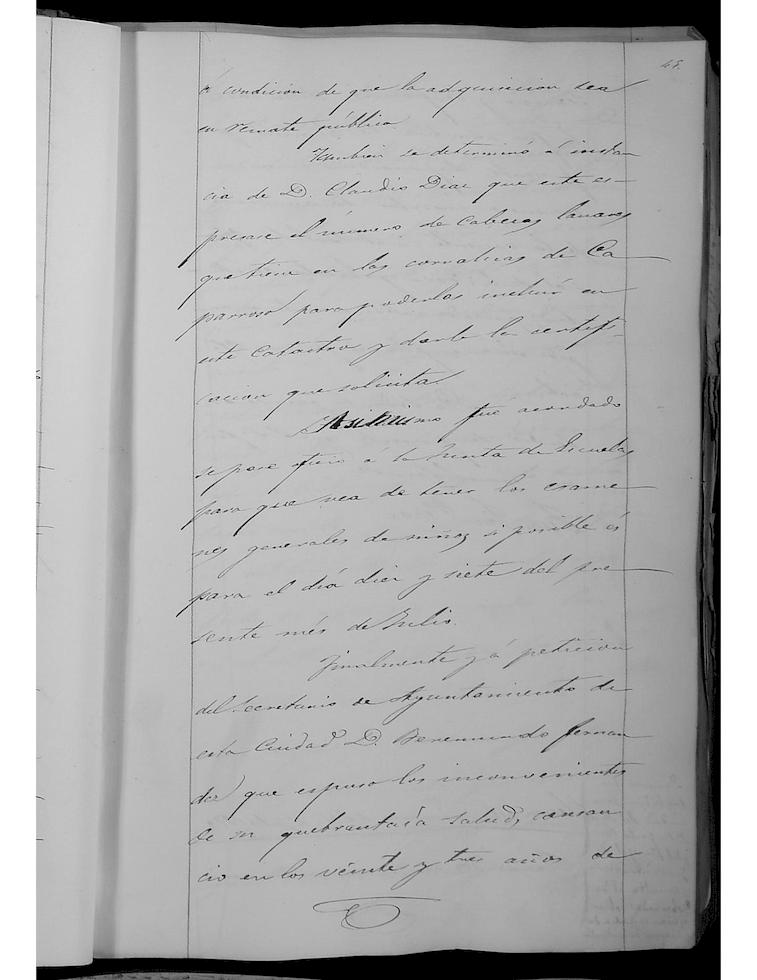 á condicion de que la adquisicion sea
en remate público.
Tambien se determinó á instan
cia de D. Claudio Diaz que este es-
prese el número de cabezas lanares
que tiene en las corralizas de Ca
parroso para poderlas incluir en
este Catastro y darle la certifi-
cacion que solicita.
Asimismo fué acordado
se pase á la Junta de Escuelas
para que vea de tener los exame
nes generales de niños si posible és
para el dia diez y siete del pre
sente més de Julio.
Finalmente y á peticion
del Secretario de Ayuntamiento de
esta Ciudad D. Beremundo Fernan
dez que espuso los inconvenientes
de su quebrantada salud, cansan
cio en los veinte y tres años de